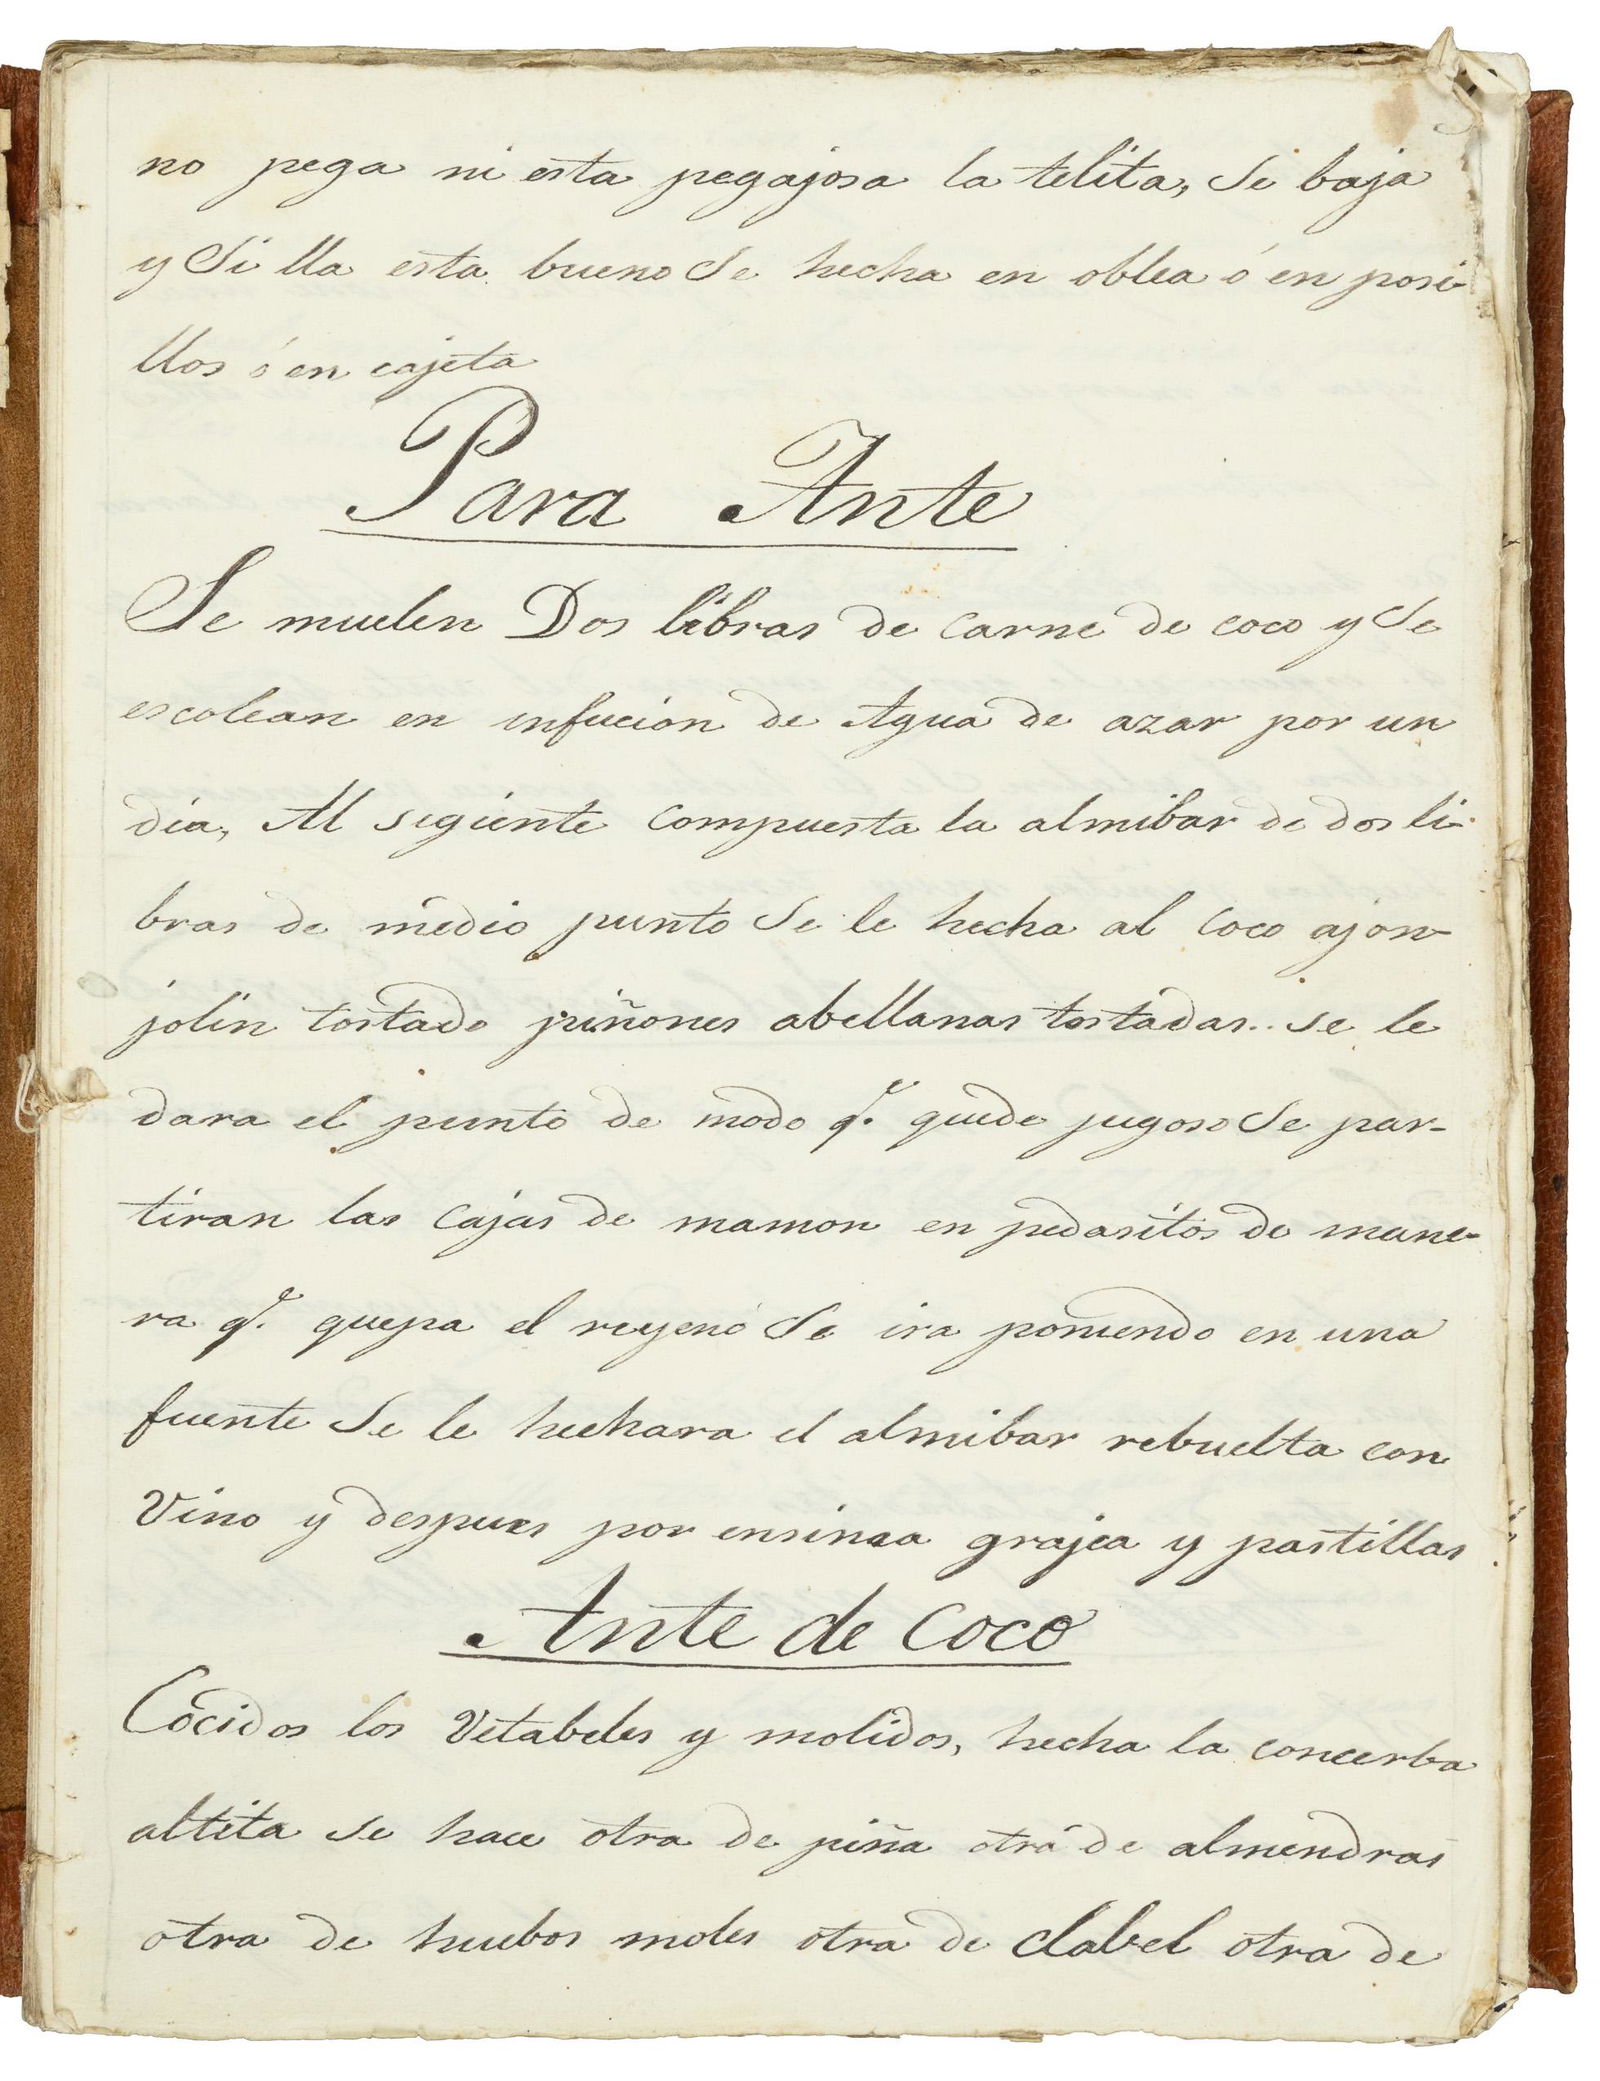 no pega ni esta pegajosa la telita, se baja
y Si lla esta bueno Se hecha en oblea ó en posi-
llos ó en cajeta
Para Ante
Se muelen Dos libras de carne de coco y Se
escolean en infucion de Agua de azar por un
dia, Al sigiente compuesta la almibar de dos li-
bras de medio punto Se le hecha al coco ajon-
jolin tostado piñones abellanas tostadas.. se le
dara el punto de modo q.e quede jugoso Se par-
tiran las cajas de mamon en pedasitos de mane-
ra q.e quepa el reyeno Se ira poniendo en una
fuente Se le hechara el almibar rebuelta con
Vino y despues por ensinaa grajea y pastillas
Ante de Coco
Cocidos los Vetabeles y molidos, hecha la concerba
altita se hace otra de piña otra de almendras
otra de huebos moles otra de clabel otra de